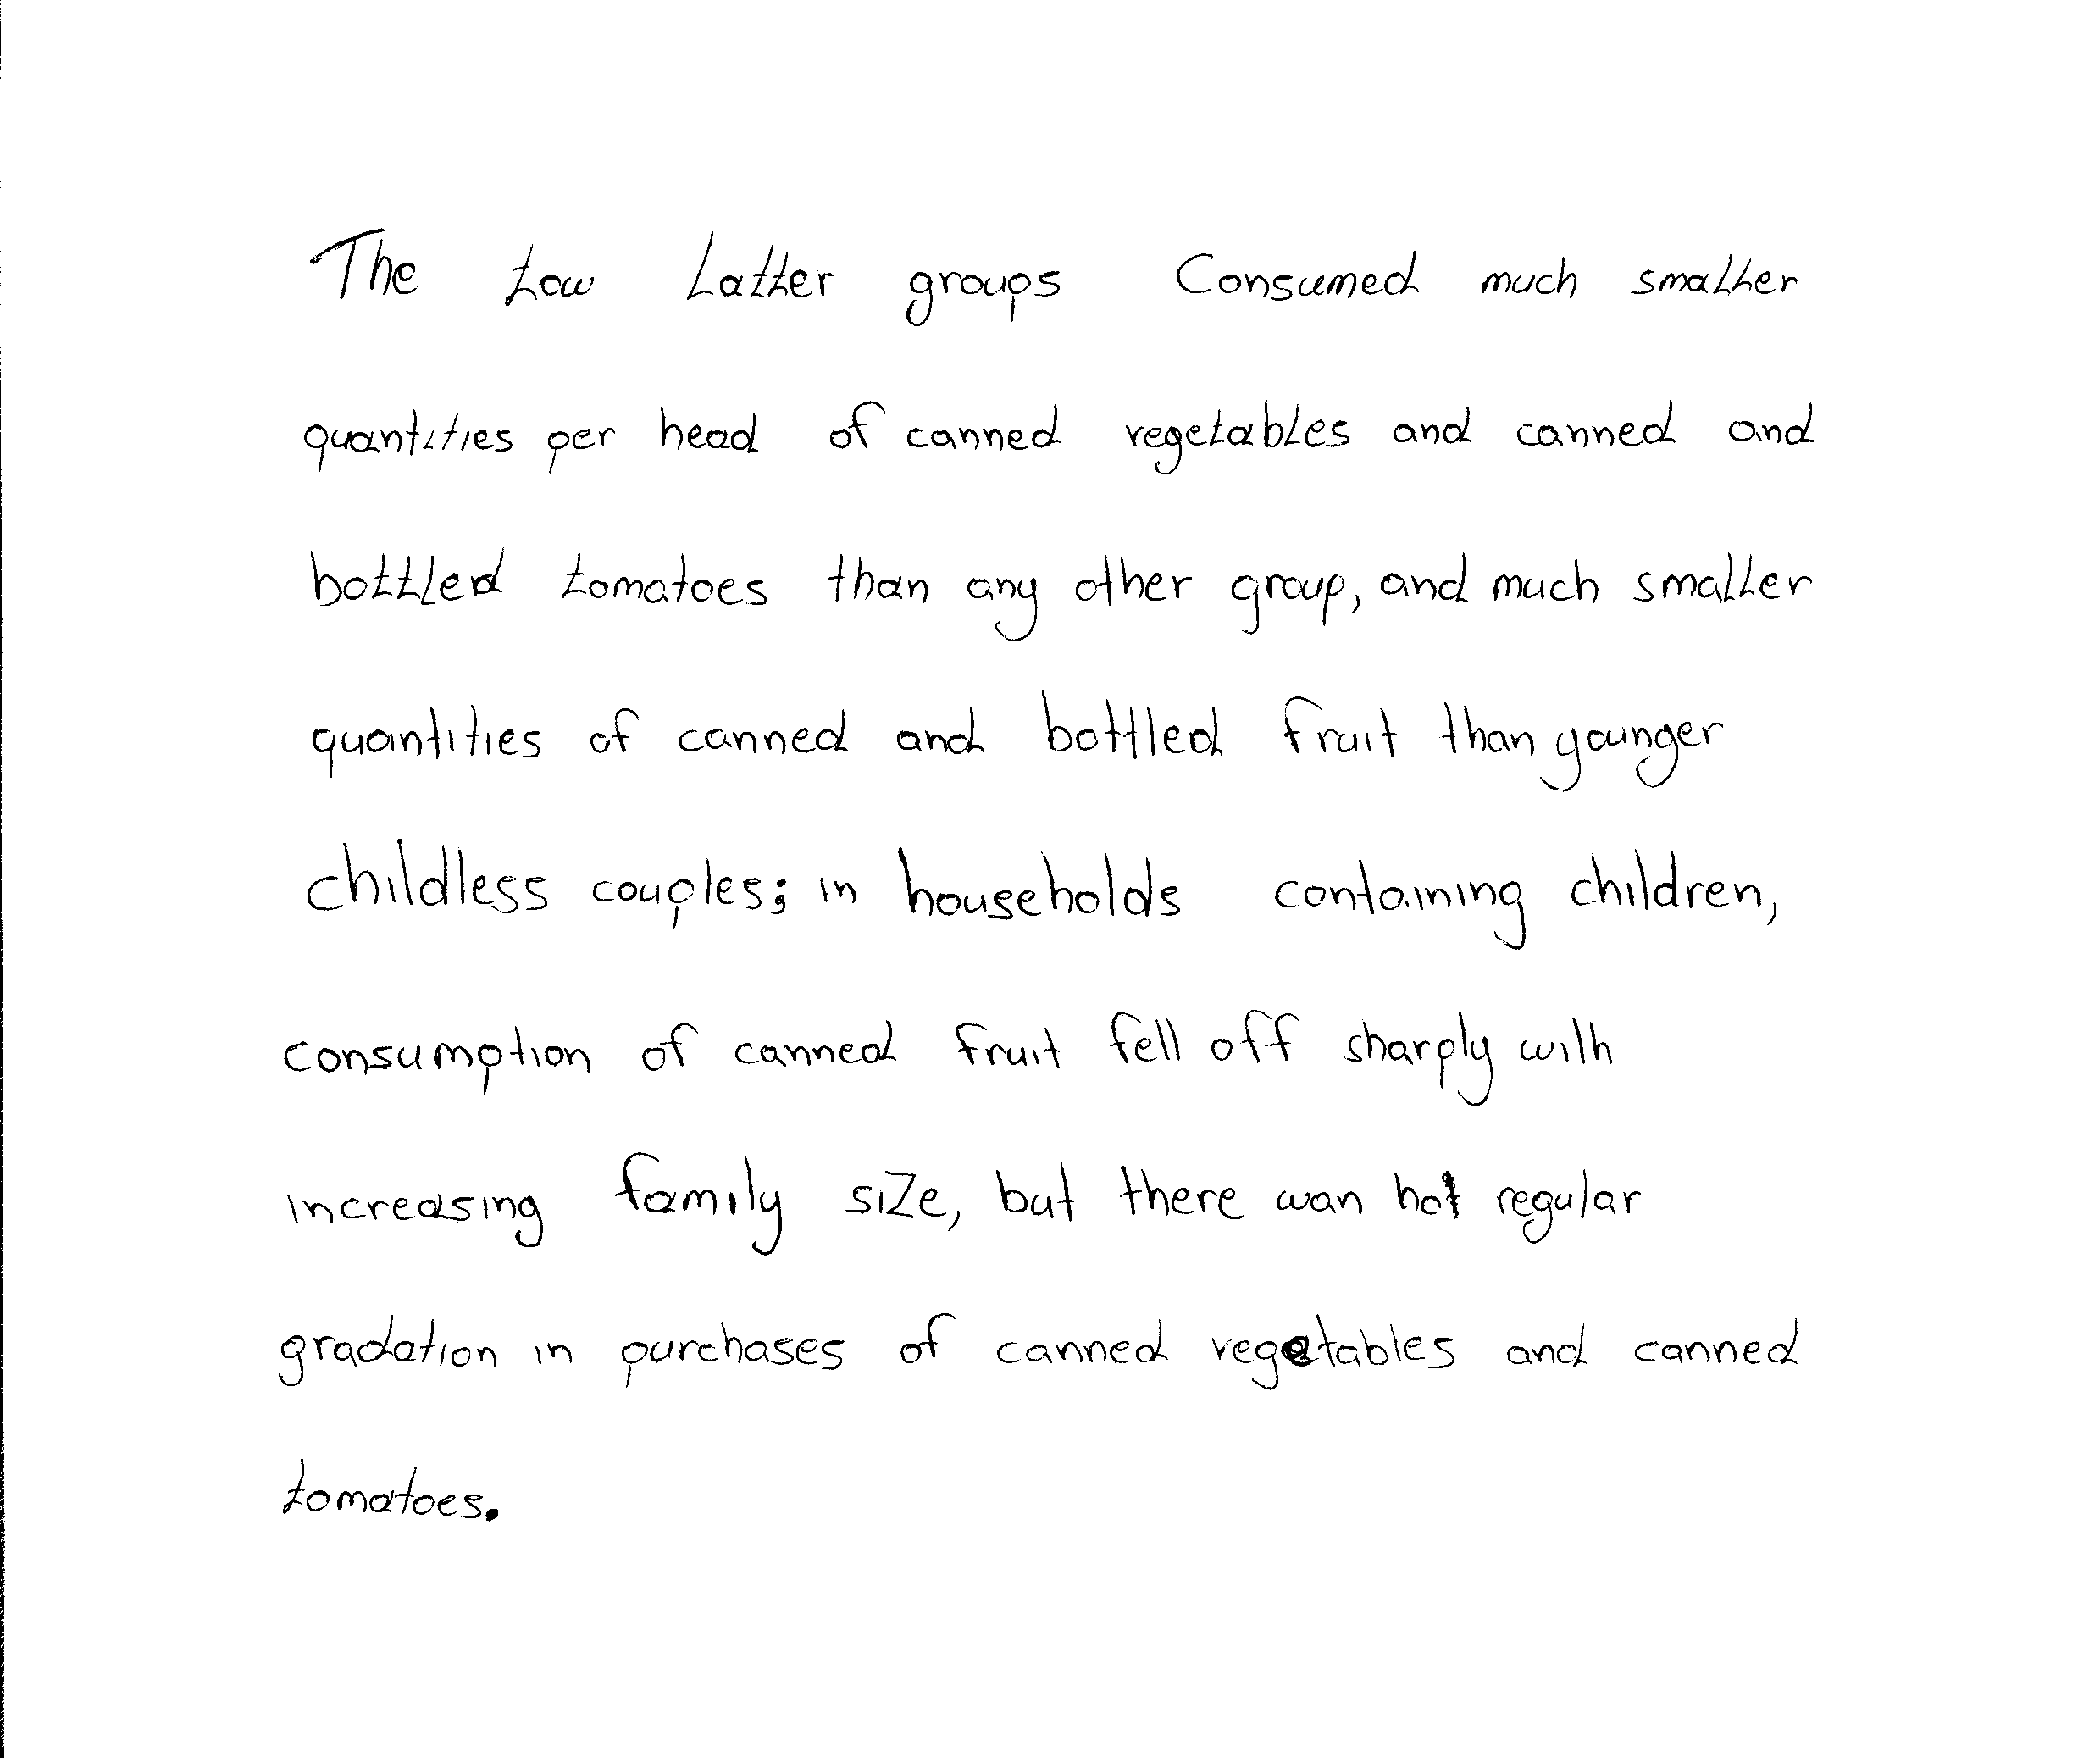 The tow Latter groups Consumed much smaller
quantities per head of canned vegetables and canned and
bottled tomatoes than any other group, and much smaller
quantities of canned and bottled fruit than younger
childless couples; in households containing children,
consumption of canned fruit fell off sharply with
increasing family size, but there wan hot regular
gradation in purchases of canned vegetables and canned
tomatoes.